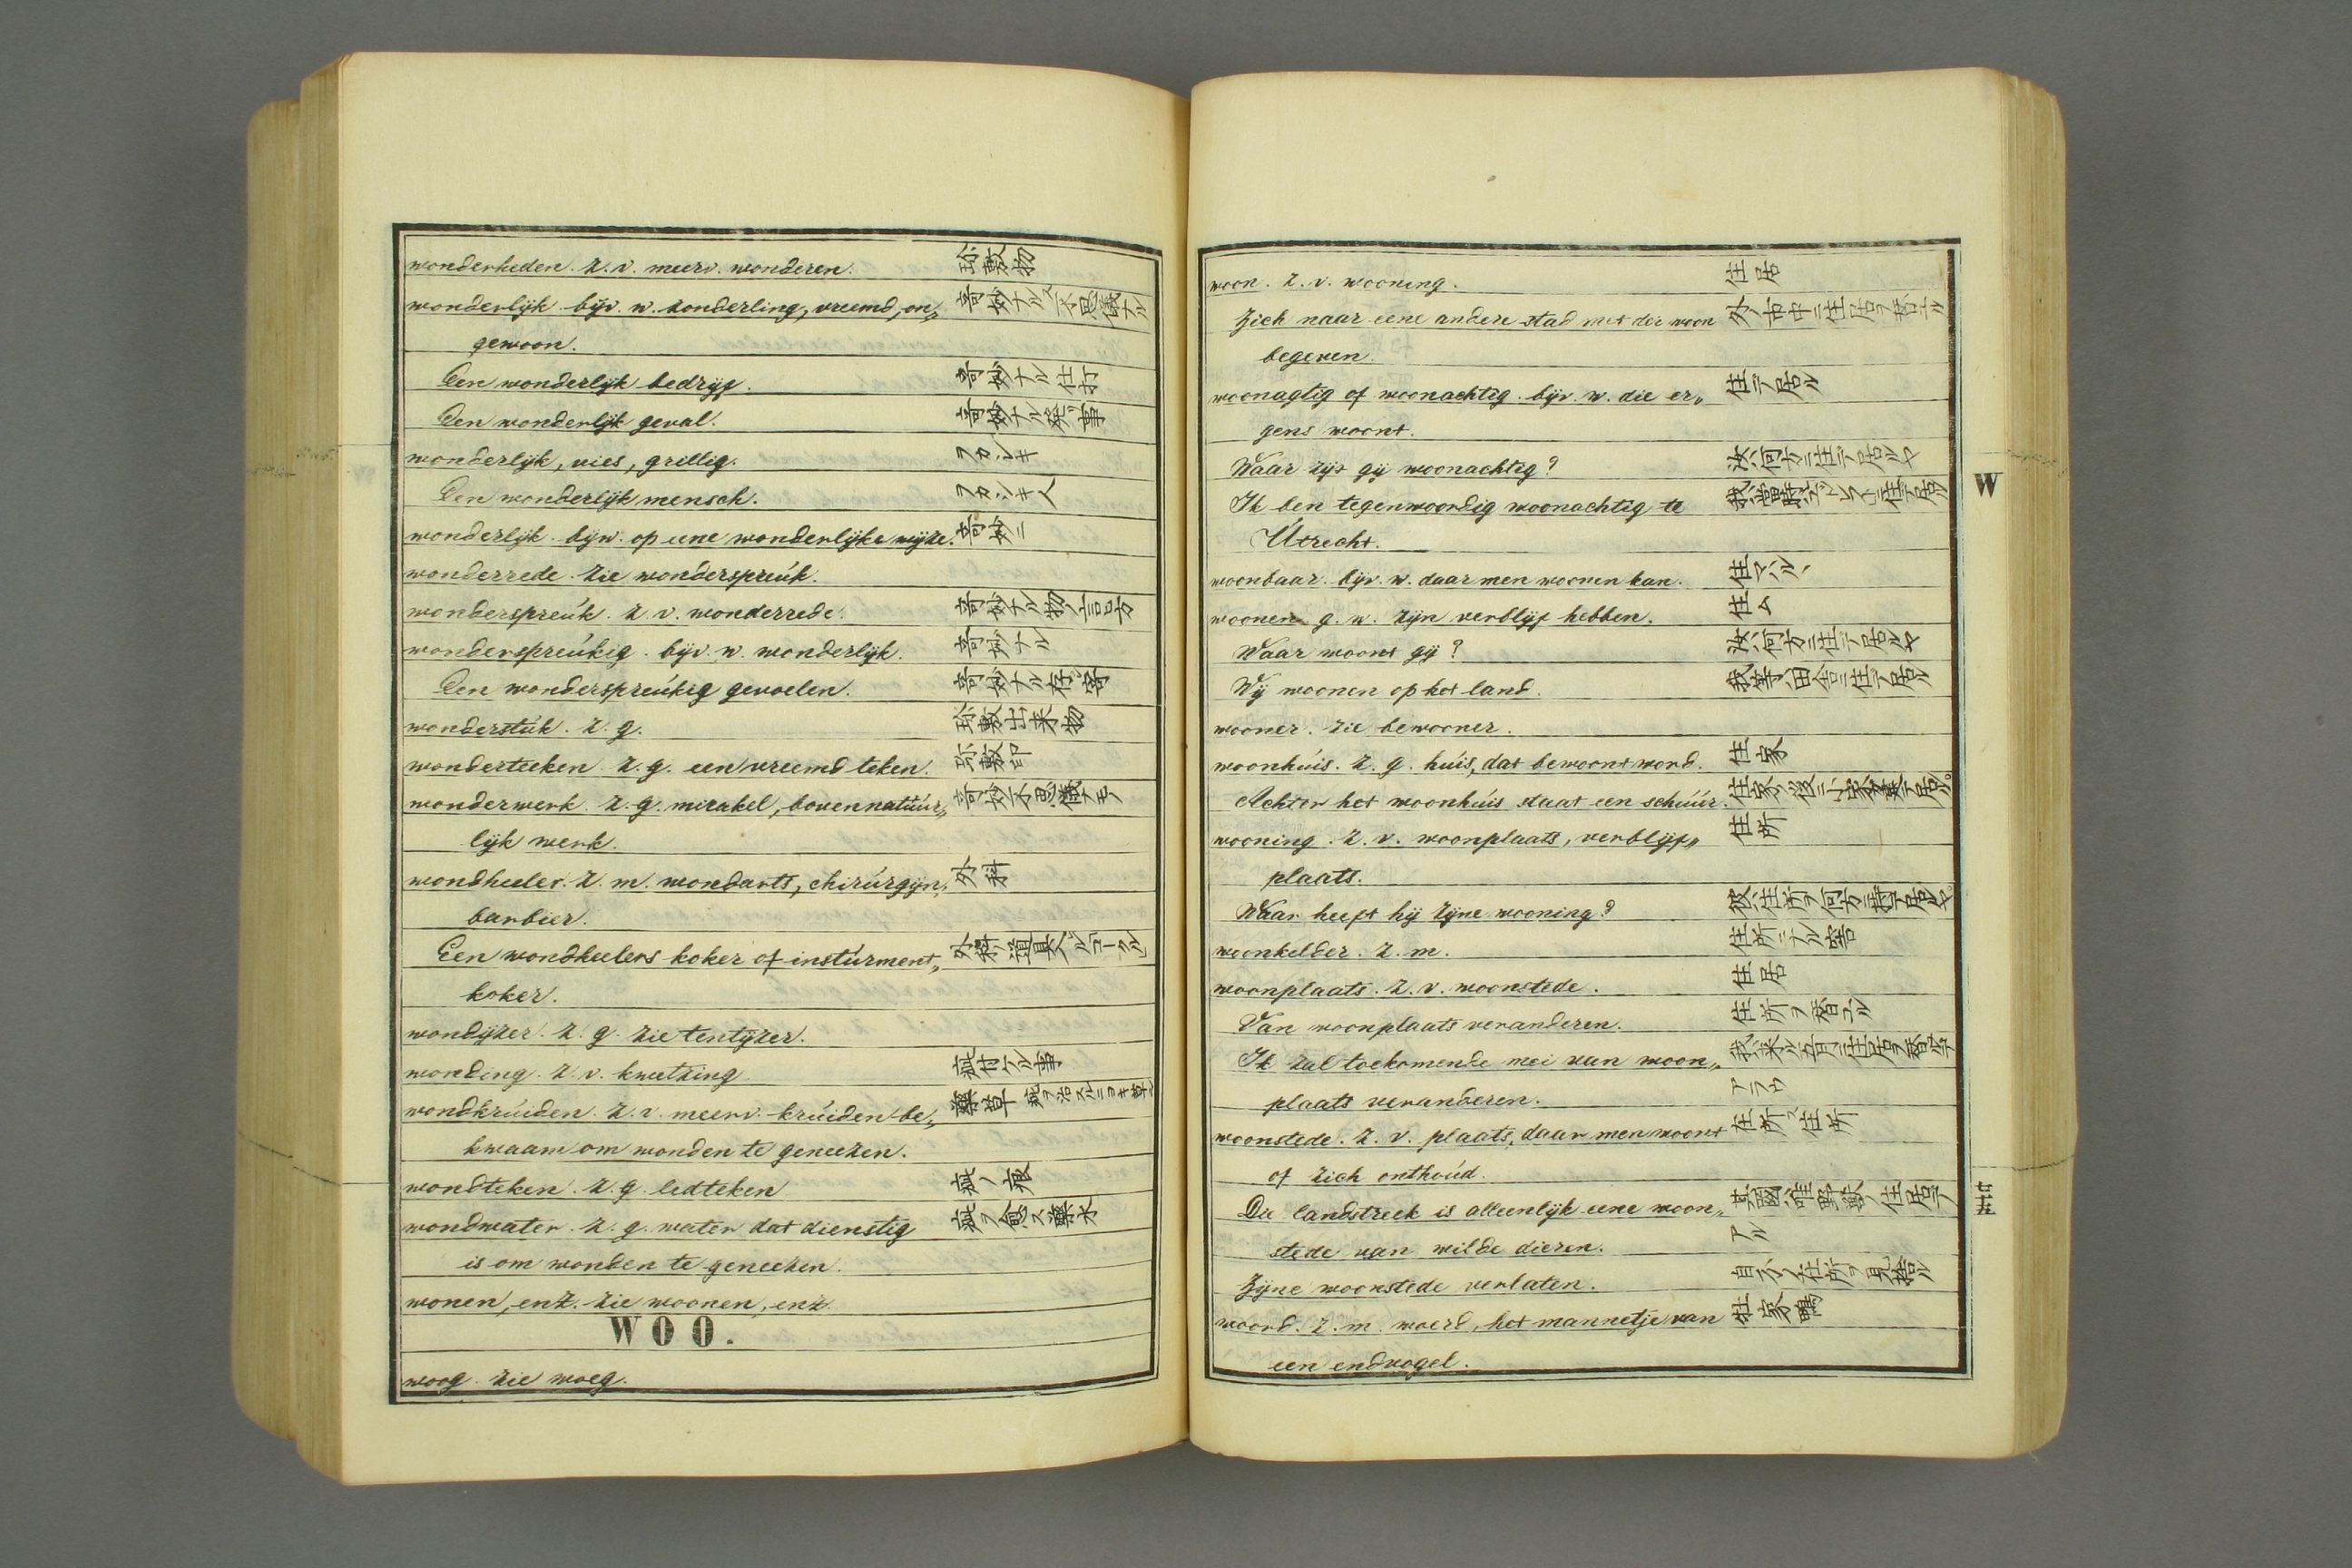 wonderheden. z. v. meerv. wonderen. 珍敷物
wonderlijk. bijv. w. zonderling, vreemd, on„ 奇妙ナル又不思儀ナル
gewoon.
Een wonderlijk bedrijf. 奇妙ナル仕打
Een wonderlijk geval. 奇妙ナル
wonderlijk, vies, grillig.
Een wonderlijk mensch.
wonderlijk. bijw. op eene wonderlijke wijze. 奇妙ニ
wonderrede. zie wonderspreúk.
wonderspreúk. z. v. wonderrede. 奇妙ナル物
wonderspreúkig. bijv. w. wonderlijk. 奇妙ナル
Een wonderspreúkig gevoelen. 奇妙ナル存寄
wonderstúk. z. g. 珍敷出来物
wonderteeken. z. g. een vreemd teken. 珍敷印
wonderwerk. z. g. mirakel, bovennatúúr„ 奇妙不思儀ナモノ
lijk werk.
wondheeler. z. m. wondarts, chirúrgijn, 外科
barbier.
Een wondheelers koker of instúrment„ 外科ノ道具
koker.
wondijzer. z. g. zie tentijzer.
wonding. z. v. kwetzing 疵付ケル事
wondkrúiden. z. v. meerv. krúiden be„ 藥草 疵ヲ治スルニヨキ草
kwaam om wonden te geneezen.
wondteken. z. g. ledteken 疵ノ痕
wondwater. z. g. water dat dienstig 疵ヲ愈ス藥水
is om wonden te geneezen.
wonen, enz. zie woonen, enz.
WOO.
woog. zie woeg.
woon. z. v. wooning. 住居
Zich naar eene andere stad met der woon 外ノ市中ニ住居ヲ替ユル
begeven.
woonagtig of woonachtig. bijv. w. die er„ 住テ居ル
gens woont.
Waar zijt gij woonachtig? 汝ハ何方ニ住テ居ルヤ
Ik ben tegenwoordig woonachtig te 我ハ當時ユットレクトニ住テ居ル
Útrecht.
woonbaar. bijv. w. daar men woonen kan. 住マルヽ
woonen. g. w. zijn verblijf hebben. 住ム
Waar woont gij? 汝ハ何方ニ住テ居ルヤ
Wij woonen op het land. 我等ハ田舎ニ住テ居ル
wooner. zie bewooner.
woonhúis. z. g. húis, dat bewoont word. 住家
Achter het woonhúis staat een schúúr. 住家ノ後ニ小家
wooning. z. v. woonplaats, verblijf„ 住所
plaats.
Waar heeft hij zijne wooning? 彼ハ住所ヲ何方ニ
woonkelder. z. m. 住所ニナル窖
woonplaats. z. v. woonstede. 住居
Van woonplaats veranderen. 住所ヲ替ユル
Ik zal toekomende mei van woon„ 我ハ来ル五月ニ住居ヲ替ヱテ
plaats veranderen. アラウ
woonstede. z. v. plaats, daar men woont 在所又住所
of zich onthoúd.
Die landstreek is alleenlijk eene woon„ 其國ハ唯野獸ノ住居テ
stede van wilde dieren. アル
Zijne woonstede verlaten. 自分ノ在所ヲ見捨ル
woord. z. m. woerd, het mannetje van 牡家鴨
een endvogel.
W
七十五